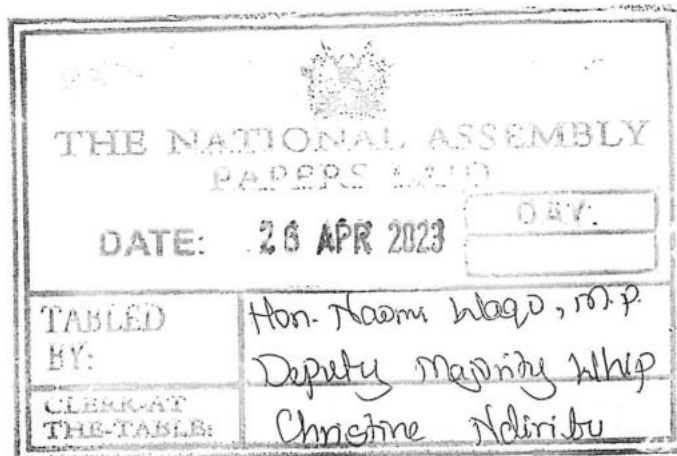 THE NATIONAL ASSEMBLY
PAPERS LAID
DATE: 26 APR 2023
DAY:
TABLED BY:
Hon. Naomi Waqo, M.P.
Deputy Majority Whip
CLERK-AT THE-TABLE:
Christine Ndiritu